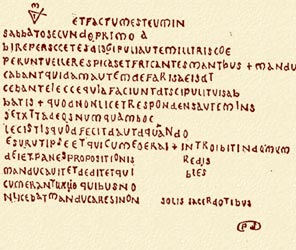 ETFACTUMESTEUMIN
SABBATOSECUNDOPRIMO A
BIREPERSCCETESDISCIPULIAUTEMILLIRISCOE
PERUNTVELLERESPICASETFRICANTESMANTBUS + MANDU
CABANTQUIDAMAUTEMDEFARISAEISDT
CEBANTELECCEQUIAFACIUNTDTSCIPULITUISAB
BATIS + QUODNONLICETRESPONDENSAUTEMINS
SETXTTADEOSNUMQUAMHOC
LECISTISQUODFECITDAUTDQUANDO
ESURUTIPSEETQUICUMEOERAI + INTROIBITINDOMUM
DEIETPANESPROPOSITIONIS REDIS
MANDUCAUITETDEDITETQUI BLES
QUIBUSNO
NLICEBATMANDUCARESINON SOLIS SACERDOTIBUS
PD